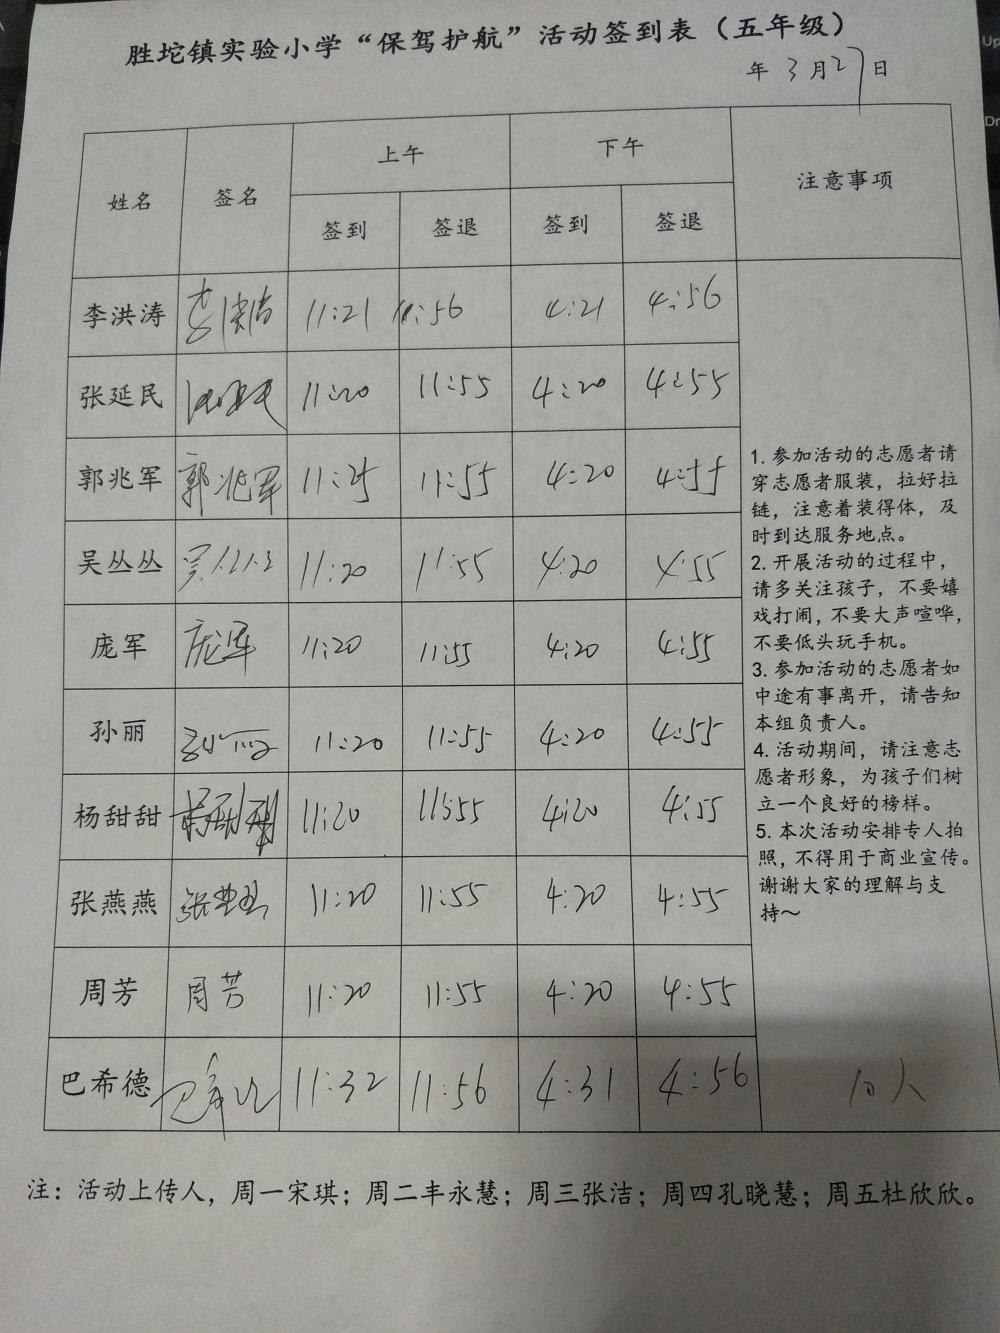 胜坨镇实验小学“保驾护航”活动签到表（五年级）
年 3月27日
姓名 签名 上午 下午 注意事项
签到 签退 签到 签退
李洪涛 李洪涛 11:21 11:56 4:21 4:56
张延民 11:20 11:55 4:20 4:55
郭兆军 郭兆军 11:25 11:55 4:20 4:55
吴丛丛 吴丛丛 11:20 11:55 4:20 4:55
庞军 庞军 11:20 11:55 4:20 4:55
孙丽 孙丽 11:20 11:55 4:20 4:55
杨甜甜 杨甜甜 11:20 11:55 4:20 4:55
张燕燕 张燕燕 11:20 11:55 4:20 4:55
周芳 周芳 11:20 11:55 4:20 4:55
巴希德 11:32 11:56 4:31 4:56
1. 参加活动的志愿者请
穿志愿者服装，拉好拉
链，注意着装得体，及
时到达服务地点。
2. 开展活动的过程中，
请多关注孩子，不要嬉
戏打闹，不要大声喧哗，
不要低头玩手机。
3. 参加活动的志愿者如
中途有事离开，请告知
本组负责人。
4. 活动期间，请注意志
愿者形象，为孩子们树
立一个良好的榜样。
5. 本次活动安排专人拍
照，不得用于商业宣传。
谢谢大家的理解与支
持～
10人
注：活动上传人，周一宋琪；周二丰永慧；周三张洁；周四孔晓慧；周五杜欣欣。